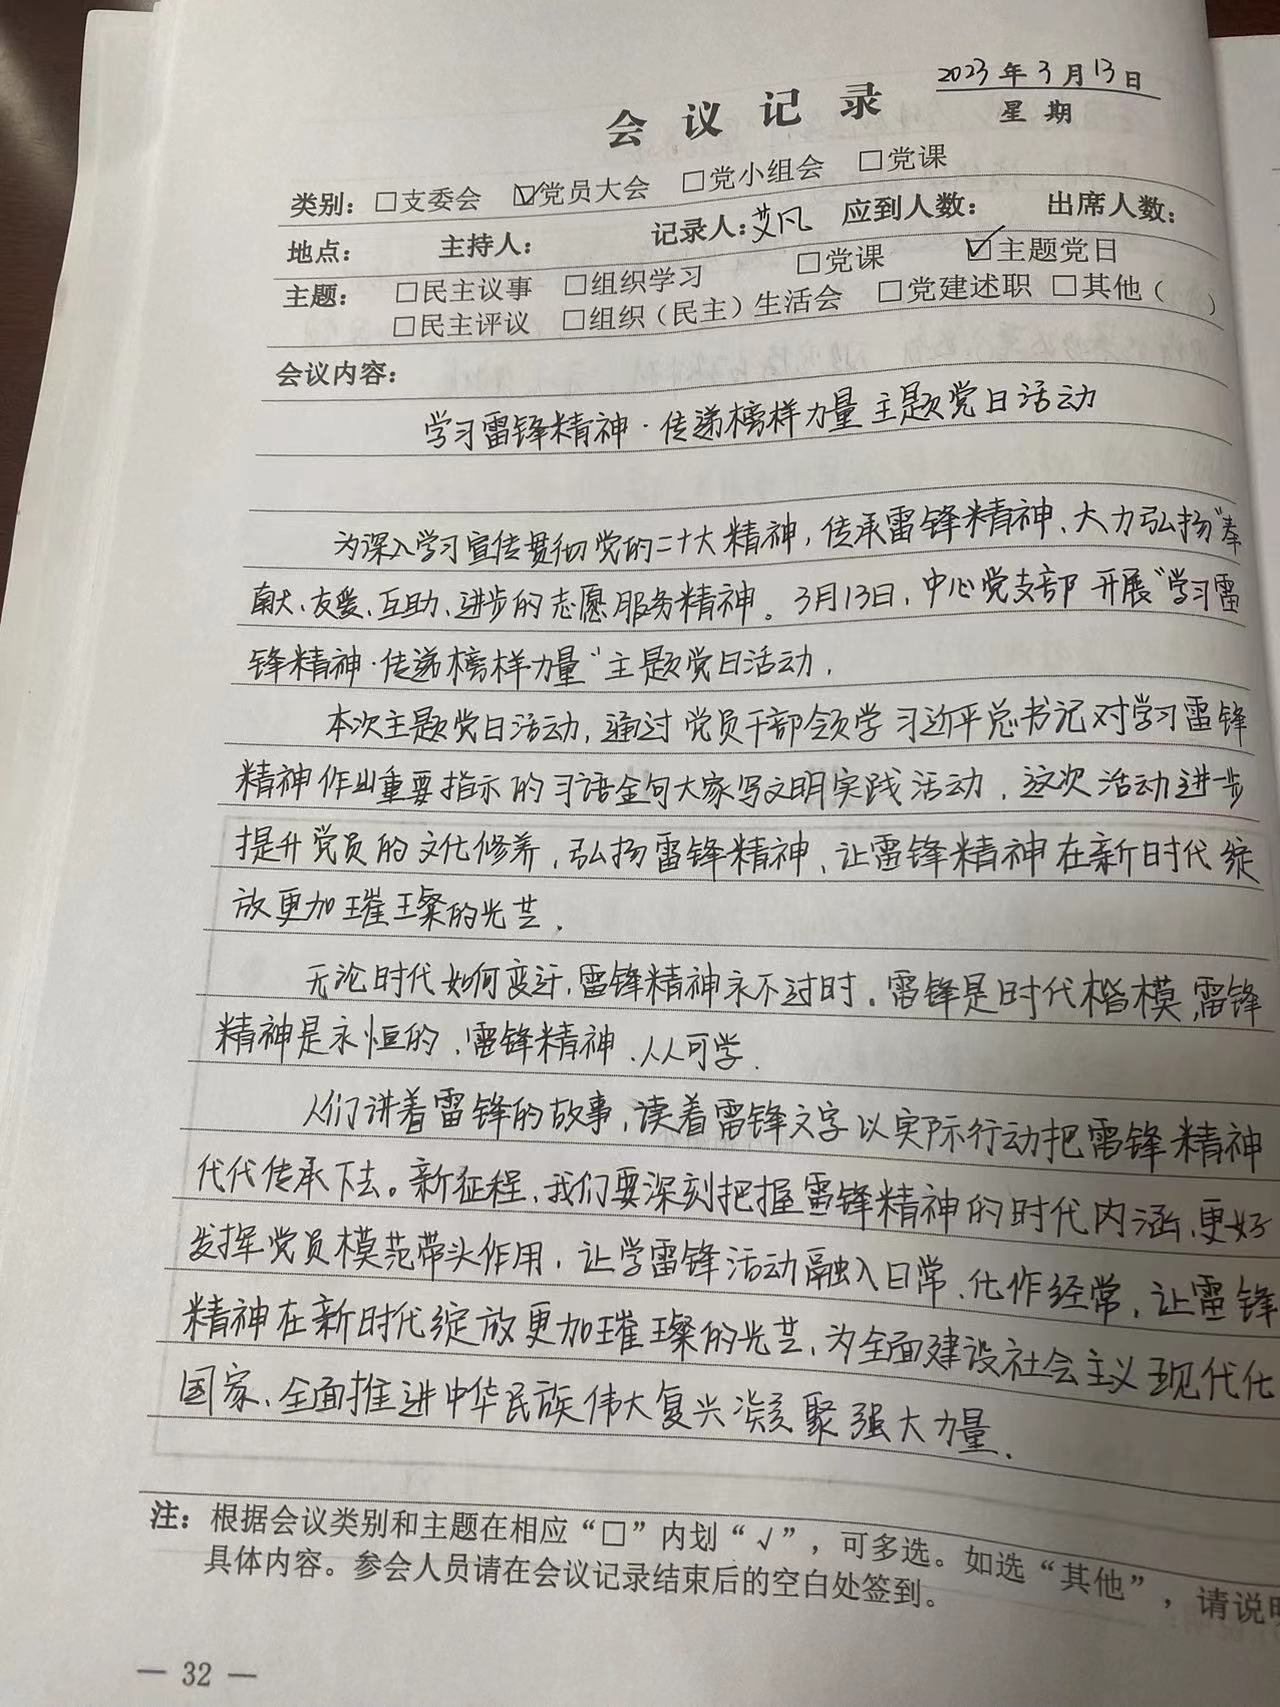 2023年3月13日
会议记录
星期
类别：□支委会 ☑党员大会 □党小组会 □党课
地点： 主持人： 记录人：艾凡 应到人数： 出席人数：
主题： □民主议事 □组织学习 □党课 ☑主题党日
□民主评议 □组织（民主）生活会 □党建述职 □其他（ ）
会议内容：
学习雷锋精神·传递榜样力量主题党日活动
为深入学习宣传贯彻党的二十大精神，传承雷锋精神、大力弘扬“奉
献、友爱、互助、进步的志愿服务精神。3月13日，中心党支部开展“学习雷
锋精神·传递榜样力量”主题党日活动.
本次主题党日活动，通过党员干部领学习近平总书记对学习雷锋
精神作出重要指示的习语金句大家写文明实践活动，这次活动进一步
提升党员的文化修养，弘扬雷锋精神、让雷锋精神在新时代绽
放更加璀璨的光芒.
无论时代如何变迁，雷锋精神永不过时。雷锋是时代楷模，雷锋
精神是永恒的，雷锋精神、人人可学.
人们讲着雷锋的故事，读着雷锋文字以实际行动把雷锋精神
代代传承下去。新征程、我们要深刻把握雷锋精神的时代内涵，更好
发挥党员模范带头作用，让学雷锋活动融入日常、化作经常，让雷锋
精神在新时代绽放更加璀璨的光芒，为全面建设社会主义现代化
国家、全面推进中华民族伟大复兴凝聚强大力量.
注：根据会议类别和主题在相应“□”内划“√”，可多选。如选“其他”，请说明
具体内容。参会人员请在会议记录结束后的空白处签到。
— 32 —